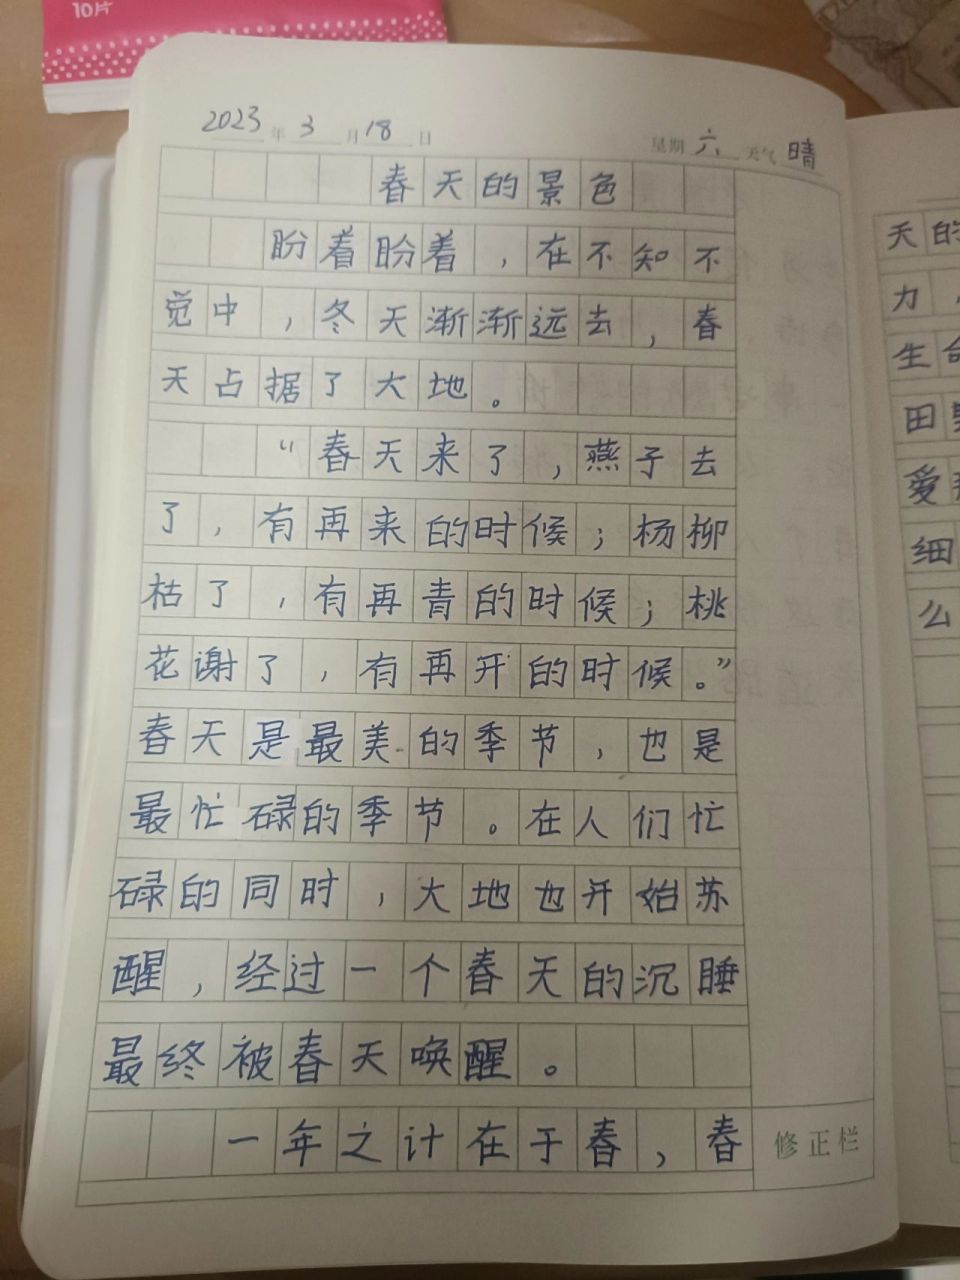 10片
2023年3月18日 星期六 天气晴
春天的景色
盼着盼着，在不知不
觉中，冬天渐渐远去，春
天占据了大地。
“春天来了，燕子去
了，有再来的时候；杨柳
枯了，有再青的时候；桃
花谢了，有再开的时候。”
春天是最美的季节，也是
最忙碌的季节。在人们忙
碌的同时，大地也开始苏
醒，经过一个春天的沉睡
最终被春天唤醒。
一年之计在于春，春
修正栏
天的
力，
生命
田野
爱
细
么